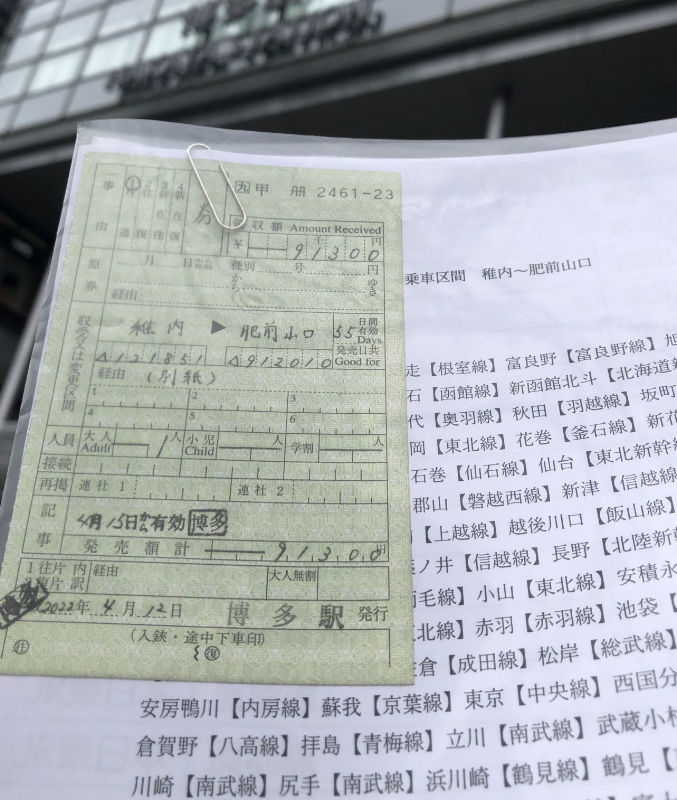 ㊈甲 册 2461-23
事由
片道
券
収額 Amount Received
¥ 91300 円
原券
月 日 種別 号 円
から ゆき
経由
収受又は変更区間
稚内 ▶ 肥前山口 55 日間有効 Days
△121851 △912010 発売日共 Good for
経由 (別紙)
1 2 3
4 5 6
人員 大人 Adult 1人 小児 Child 人 学割 人
接続
再掲 連社 1 連社 2
記事
4月15日から有効 博多
発売額計 91300 円
1往片 内 経由 大人無割
2復片 訳
2022年 4月 12日 博多駅 発行
(入鋏・途中下車印)
乗車区間 稚内～肥前山口
走【根室線】富良野【富良野線】旭
石【函館線】新函館北斗【北海道新
代【奥羽線】秋田【羽越線】坂町
岡【東北線】花巻【釜石線】新花
石巻【仙石線】仙台【東北新幹線
郡山【磐越西線】新津【信越線】
【上越線】越後川口【飯山線】
ノ井【信越線】長野【北陸新幹
毛線】小山【東北線】安積永
北線】赤羽【赤羽線】池袋【
倉【成田線】松岸【総武線】
安房鴨川【内房線】蘇我【京葉線】東京【中央線】西国分
倉賀野【八高線】拝島【青梅線】立川【南武線】武蔵小杉
川崎【南武線】尻手【南武線】浜川崎【鶴見線】鶴見【